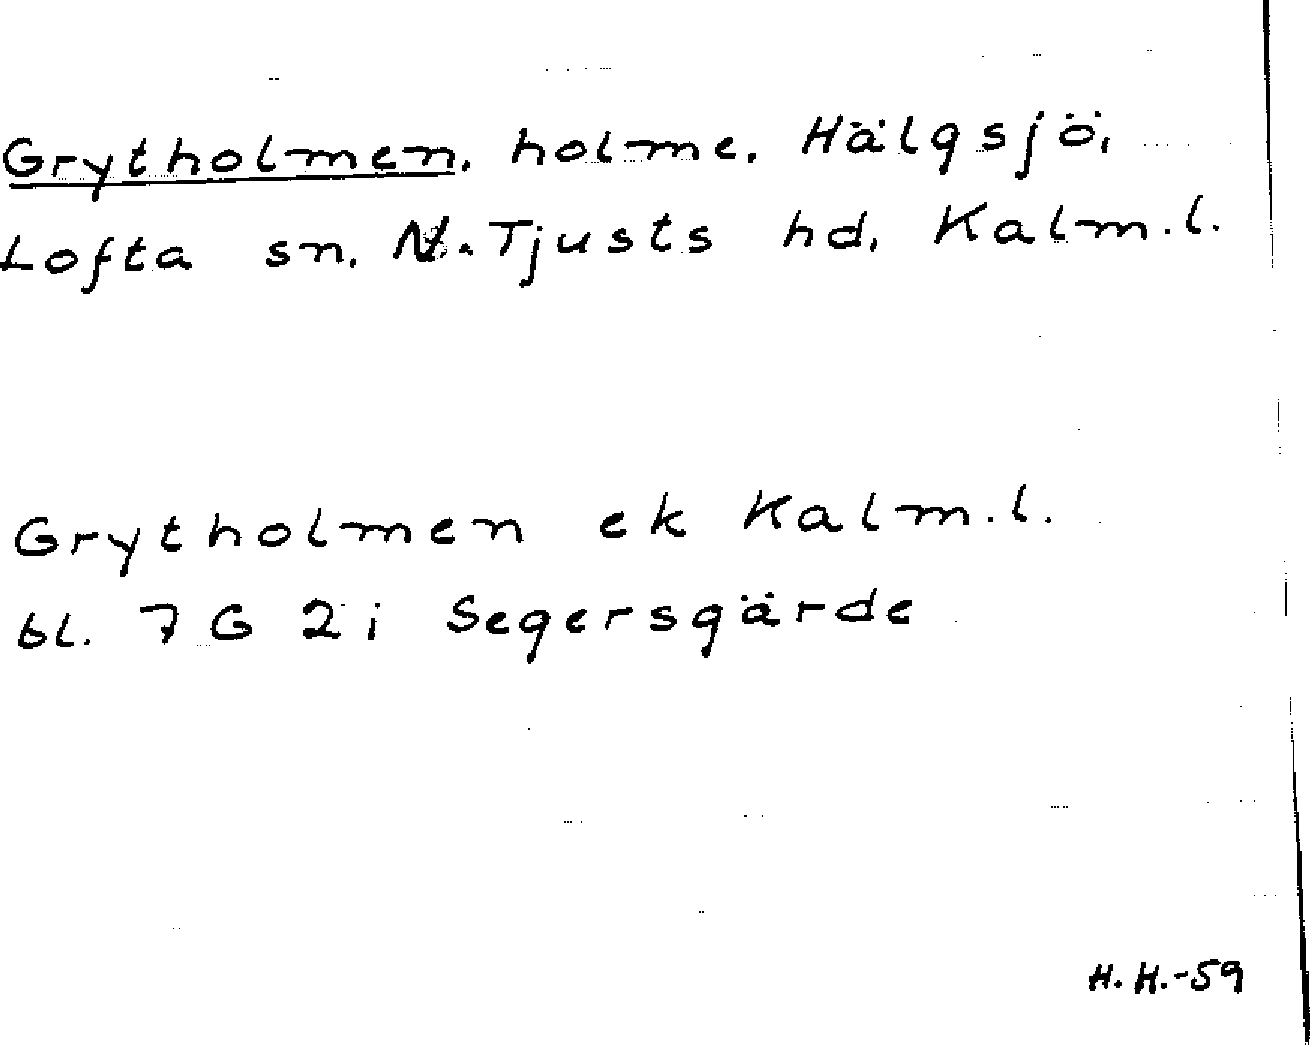 Grytholmen, holme, Hälgsjö,
Lofta sn, N.Tjusts hd, Kalm.l.
Grytholmen ek Kalm.l.
bl. 7 G 2 i Segersgärde
H.H.-59